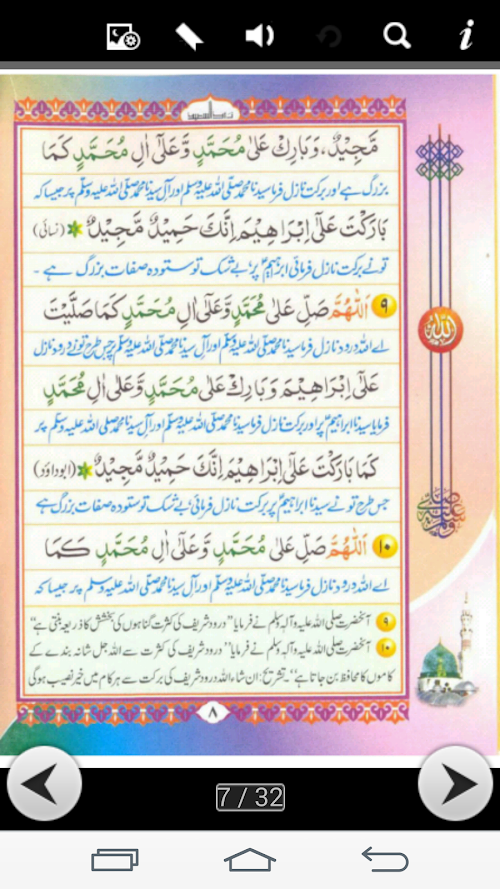 مَّجِيْدٌ، وَبَارِكْ عَلٰى مُحَمَّدٍ وَّعَلٰٓى اٰلِ مُحَمَّدٍ كَمَا
بزرگ ہے اور برکت نازل فرما سیدنا محمد صلی اللہ علیہ وسلم اور آل سیدنا محمد صلی اللہ علیہ وسلم پر جیسا کہ
بَارَكْتَ عَلٰٓى اِبْرَاهِيْمَ اِنَّكَ حَمِيْدٌ مَّجِيْدٌ (نسائی)
تو نے برکت نازل فرمائی ابراہیمؑ پر، بے شک تو ستودہ صفات بزرگ ہے ۔
۹ اَللّٰهُمَّ صَلِّ عَلٰى مُحَمَّدٍ وَّعَلٰٓى اٰلِ مُحَمَّدٍ كَمَا صَلَّيْتَ
اے اللہ درود نازل فرما سیدنا محمد صلی اللہ علیہ وسلم اور آل سیدنا محمد صلی اللہ علیہ وسلم پر جس طرح تو نے درود نازل
عَلٰٓى اِبْرَاهِيْمَ وَبَارِكْ عَلٰى مُحَمَّدٍ وَّعَلٰٓى اٰلِ مُحَمَّدٍ
فرمایا سیدنا ابراہیمؑ پر اور برکت نازل فرما سیدنا محمد صلی اللہ علیہ وسلم اور آل سیدنا محمد صلی اللہ علیہ وسلم پر
كَمَا بَارَكْتَ عَلٰٓى اِبْرَاهِيْمَ اِنَّكَ حَمِيْدٌ مَّجِيْدٌ (ابوداؤد)
جس طرح تو نے سیدنا ابراہیمؑ پر برکت نازل فرمائی، بے شک تو ستودہ صفات بزرگ ہے
۱۰ اَللّٰهُمَّ صَلِّ عَلٰى مُحَمَّدٍ وَّعَلٰٓى اٰلِ مُحَمَّدٍ كَمَا
اے اللہ درود نازل فرما سیدنا محمد صلی اللہ علیہ وسلم اور آل سیدنا محمد صلی اللہ علیہ وسلم پر جیسا کہ
۹ آنحضرت صلی اللہ علیہ وآلہ وسلم نے فرمایا "درود شریف کی کثرت گناہوں کی بخشش کا ذریعہ بنتی ہے"
۱۰ آنحضرت صلی اللہ علیہ وآلہ وسلم نے فرمایا "درود شریف کی کثرت سے اللہ جل شانہ بندے کے
کاموں کا محافظ بن جاتا ہے"۔ تشریح: ان شاء اللہ درود شریف کی برکت سے ہر کام میں خیر نصیب ہوگی
۸
اللّٰه
صلى الله عليه وسلم
7 / 32